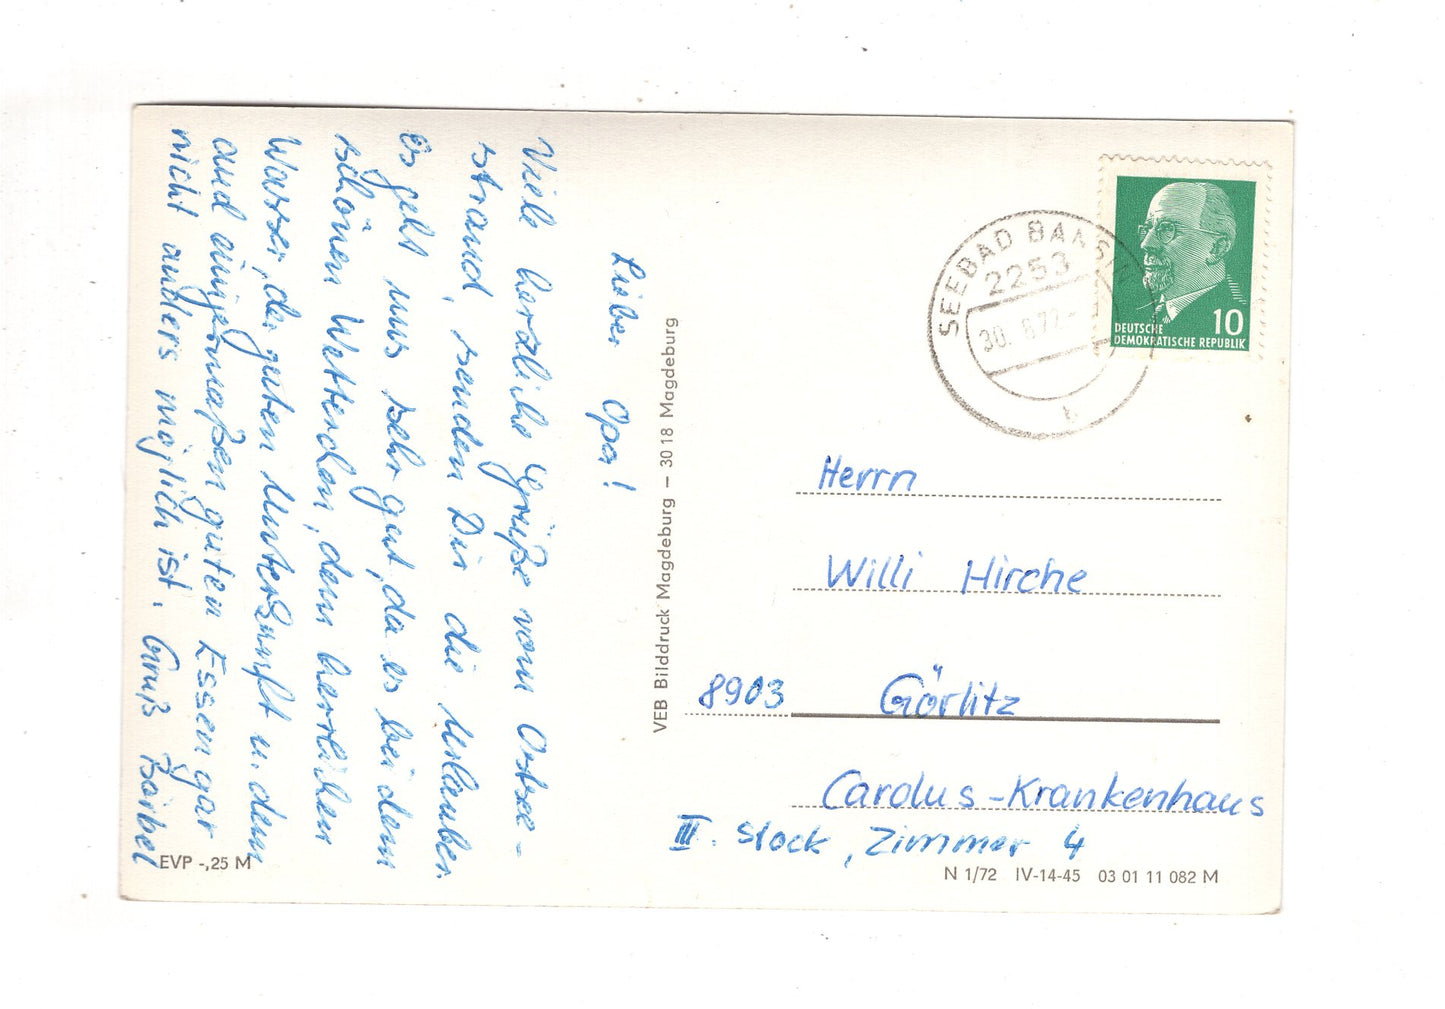 Lieber Opa!
Viele herzliche Grüße vom Ostsee-
strand, senden Dir die Urlauber.
Es geht uns sehr gut, da es bei dem
schönen Wetterchen, dem herrlichen
Wasser, der guten Unterkunft u. dem
und einigermaßen guten Essen gar
nicht anders möglich ist. Gruß Bärbel
EVP -,25 M
VEB Bilddruck Magdeburg – 30 18 Magdeburg
SEEBAD BANSIN
2253
30. 8.72-
DEUTSCHE
DEMOKRATISCHE REPUBLIK
10
Herrn
Willi Hirche
8903 Görlitz
Carolus-Krankenhaus
III. Stock, Zimmer 4
N 1/72 IV-14-45 03 01 11 082 M